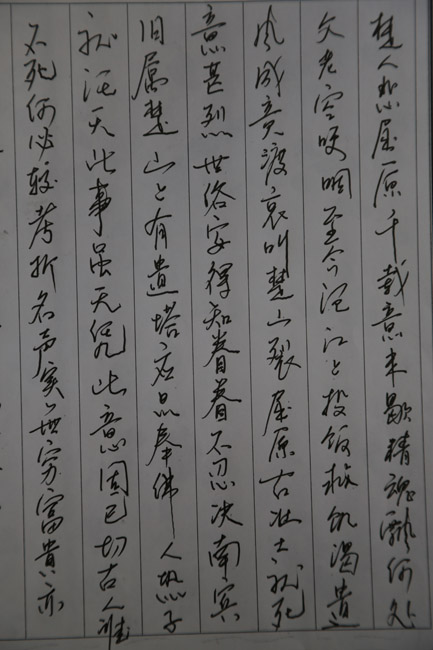 楚人悲屈原千载意未歇精魂飘何处
父老空哽咽至今沧江上投饭救饥渴遗
风成竞渡哀叫楚山裂屈原古壮士就死
意甚烈世俗安得知眷眷不忍决南宾
旧属楚山上有遗塔应是奉佛人恐子
就沦灭此事虽无凭此意固已切古人谁
不死何必较考折名声实无穷富贵亦